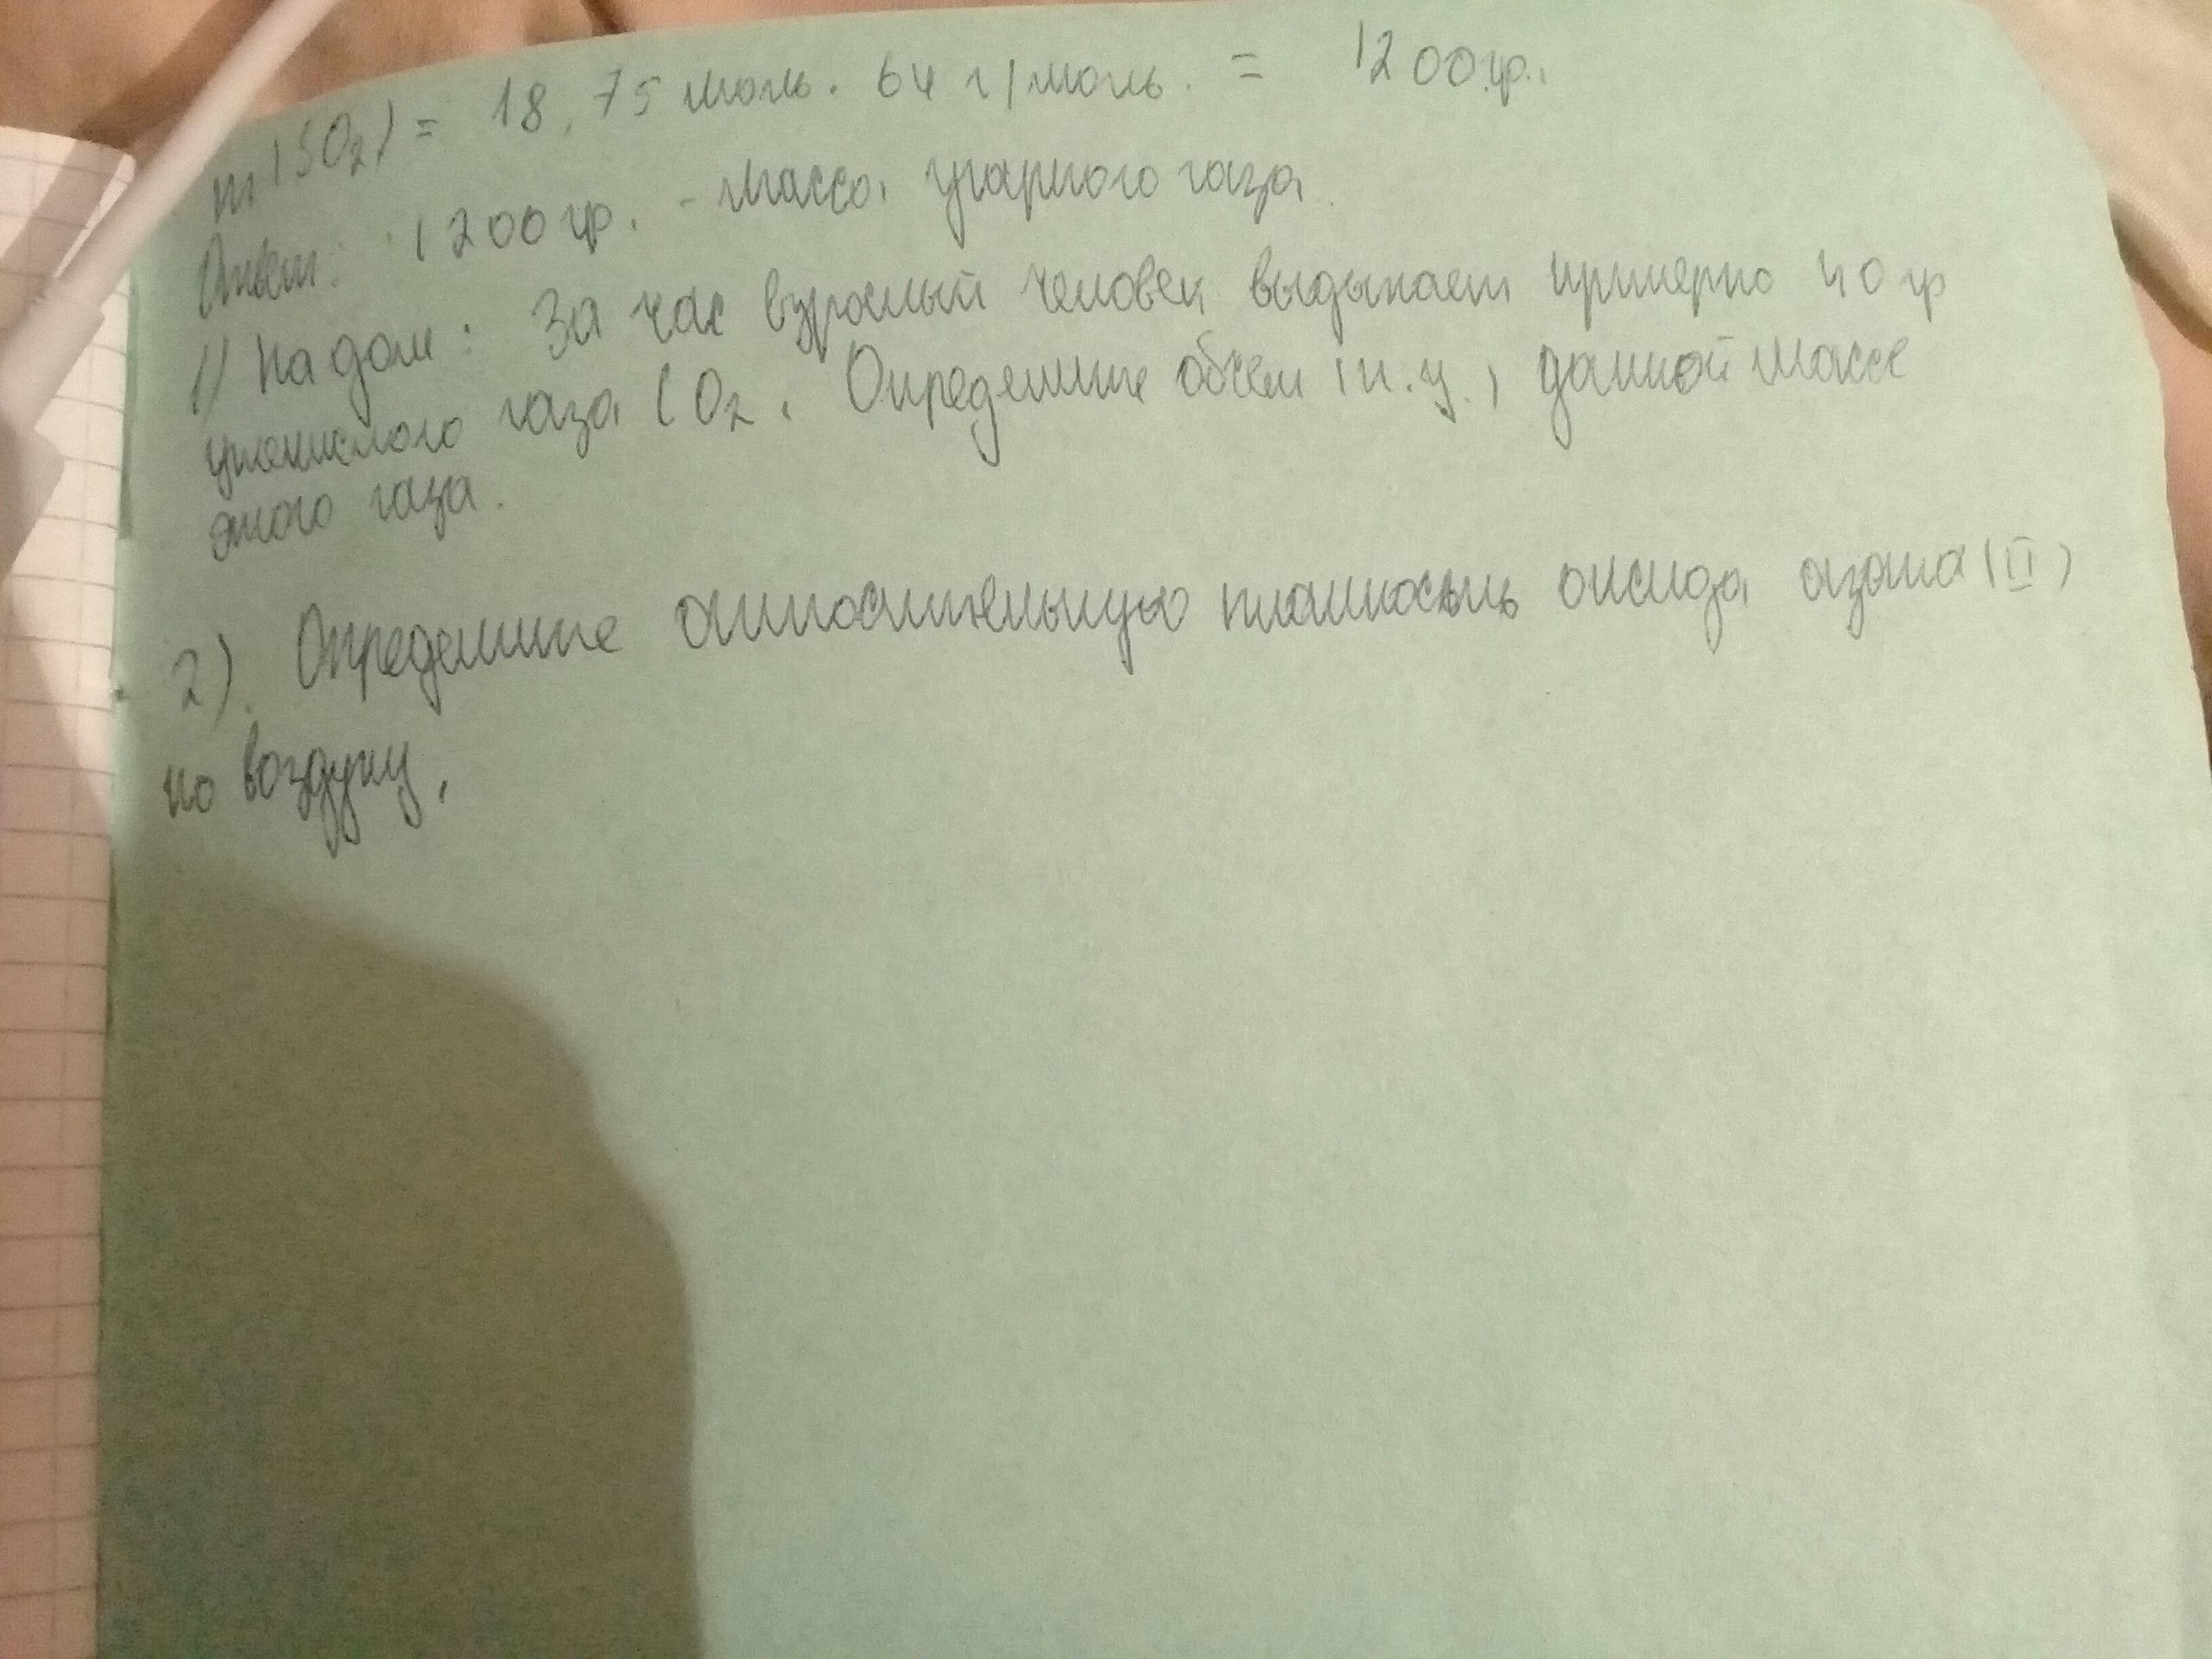 m(SO2) = 18,75 моль. 64 г/моль. = 1200гр.
Ответ: 1200 гр. - масса угарного газа.
1) На дом: За час взрослый человек выдыхает примерно 40 гр
углекислого газа CO2. Определите объем (н.у.) данной массе
этого газа.
2). Определите относительную плотность оксида азота (II)
по воздуху.